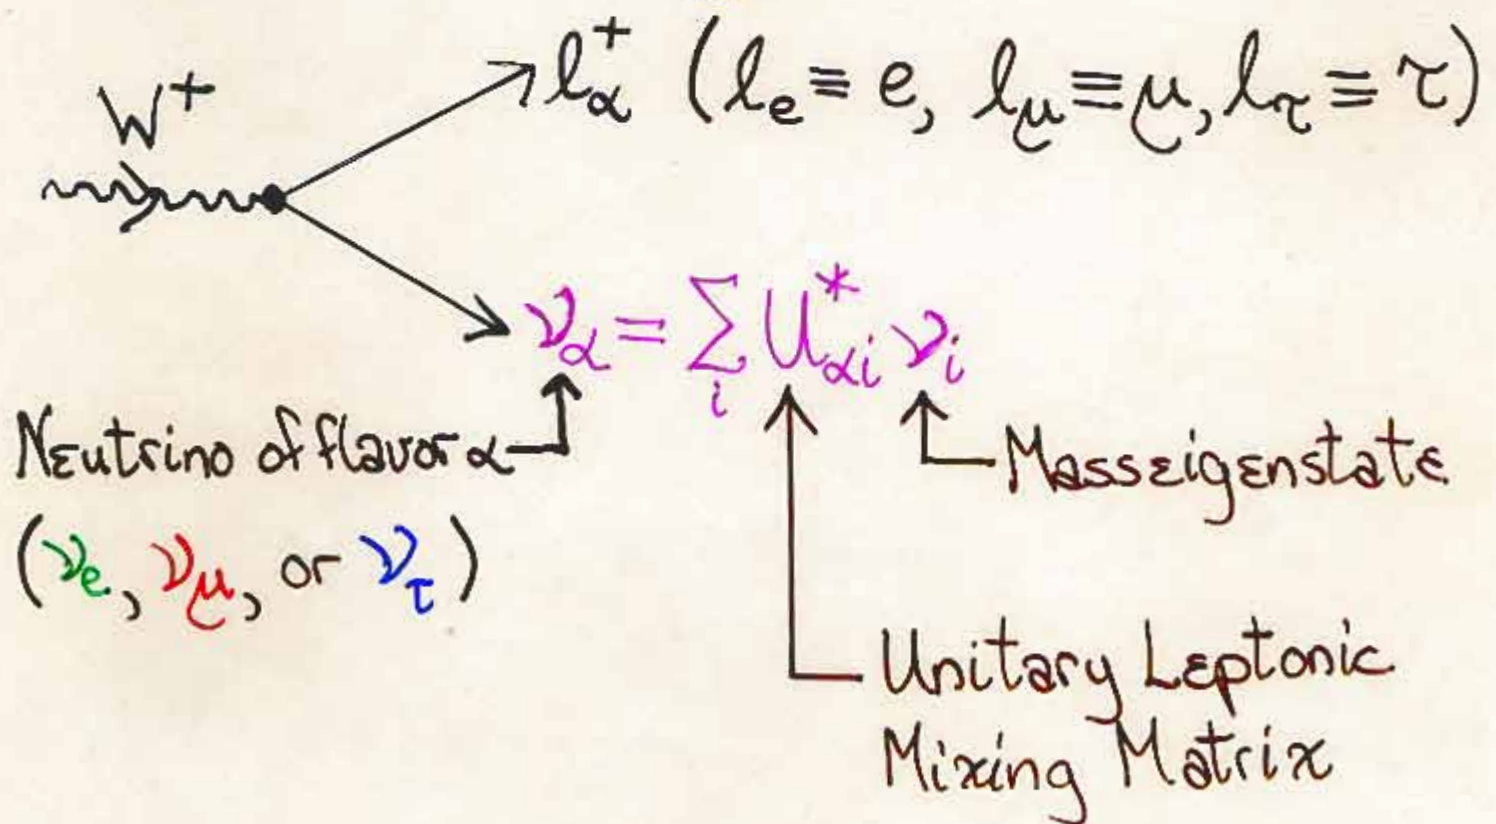 W⁺
l⁺_α (l_e ≡ e, l_μ ≡ μ, l_τ ≡ τ)
ν_α = ∑_i U*_αi ν_i
Neutrino of flavor α
Mass eigenstate
(ν_e, ν_μ, or ν_τ)
Unitary Leptonic
Mixing Matrix